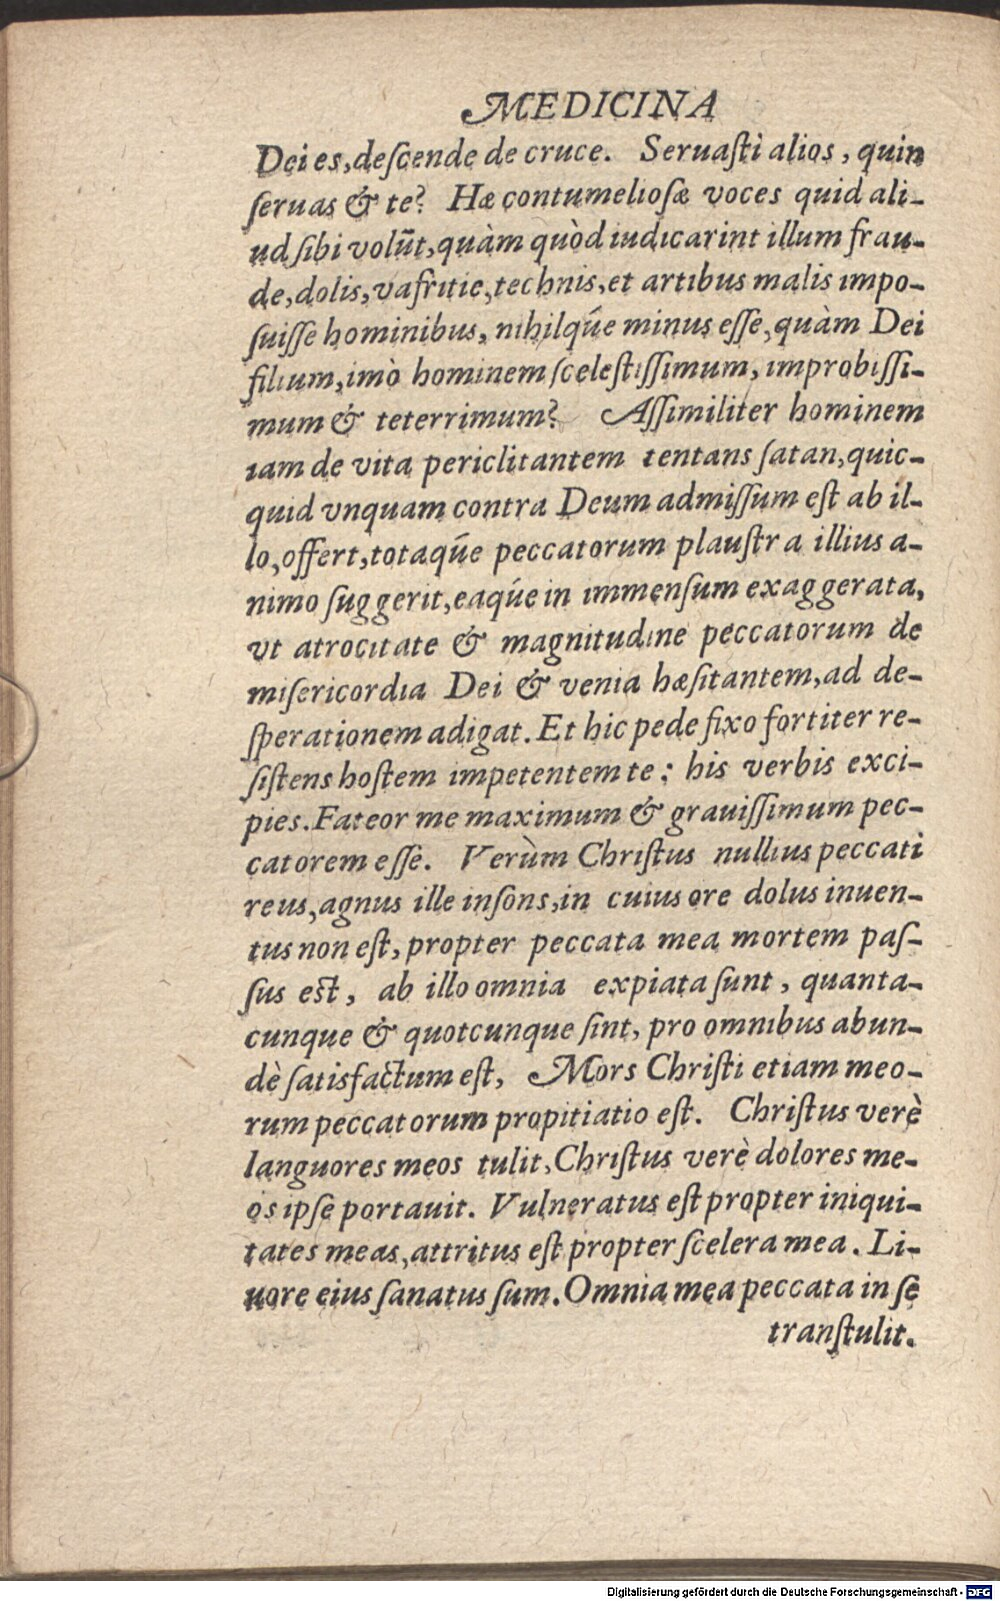 MEDICINA
Dei es, deſcende de cruce. Seruaſti alios, quin
ſeruas & te? Hæ contumelioſæ voces quid ali-
ud ſibi volūt, quàm quòd iudicarint illum frau-
de, dolis, vafritie, technis, et artibus malis impo-
ſuiſſe hominibus, nihilq́ue minus eſſe, quàm Dei
filium, imò hominem ſceleſtiſſimum, improbiſſi-
mum & teterrimum? Aſſimiliter hominem
iam de vita periclitantem tentans ſatan, quic-
quid vnquam contra Deum admiſſum eſt ab il-
lo, offert, totaq́ue peccatorum plauſtra illius a-
nimo ſuggerit, eaq́ue in immenſum exaggerata,
vt atrocitate & magnitudine peccatorum de
miſericordia Dei & venia hæſitantem, ad de-
ſperationem adigat. Et hic pede fixo fortiter re-
ſiſtens hoſtem impetentem te: his verbis exci-
pies. Fateor me maximum & grauiſſimum pec-
catorem eſſe. Verùm Chriſtus nullius peccati
reus, agnus ille inſons, in cuius ore dolus inuen-
tus non eſt, propter peccata mea mortem paſ-
ſus est, ab illo omnia expiata ſunt, quanta-
cunque & quotcunque ſint, pro omnibus abun-
dè ſatisfactum eſt, Mors Chriſti etiam meo-
rum peccatorum propitiatio eſt. Chriſtus verè
languores meos tulit, Chriſtus verè dolores me-
os ipſe portauit. Vulneratus eſt propter iniqui-
tates meas, attritus eſt propter ſcelera mea. Li-
uore eius ſanatus ſum. Omnia mea peccata in ſe
tranſtulit.
Digitalisierung gefördert durch die Deutsche Forschungsgemeinschaft - DFG